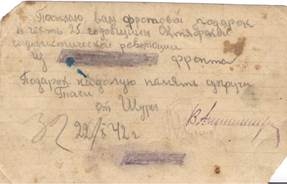 Посылаю вам фронтовой подарок
в честь 25 годовщины Октябрьской
социалистической революции
из фронта
Подарок на долгую память другу
Тасе
от Шуры
22/X 42 г.